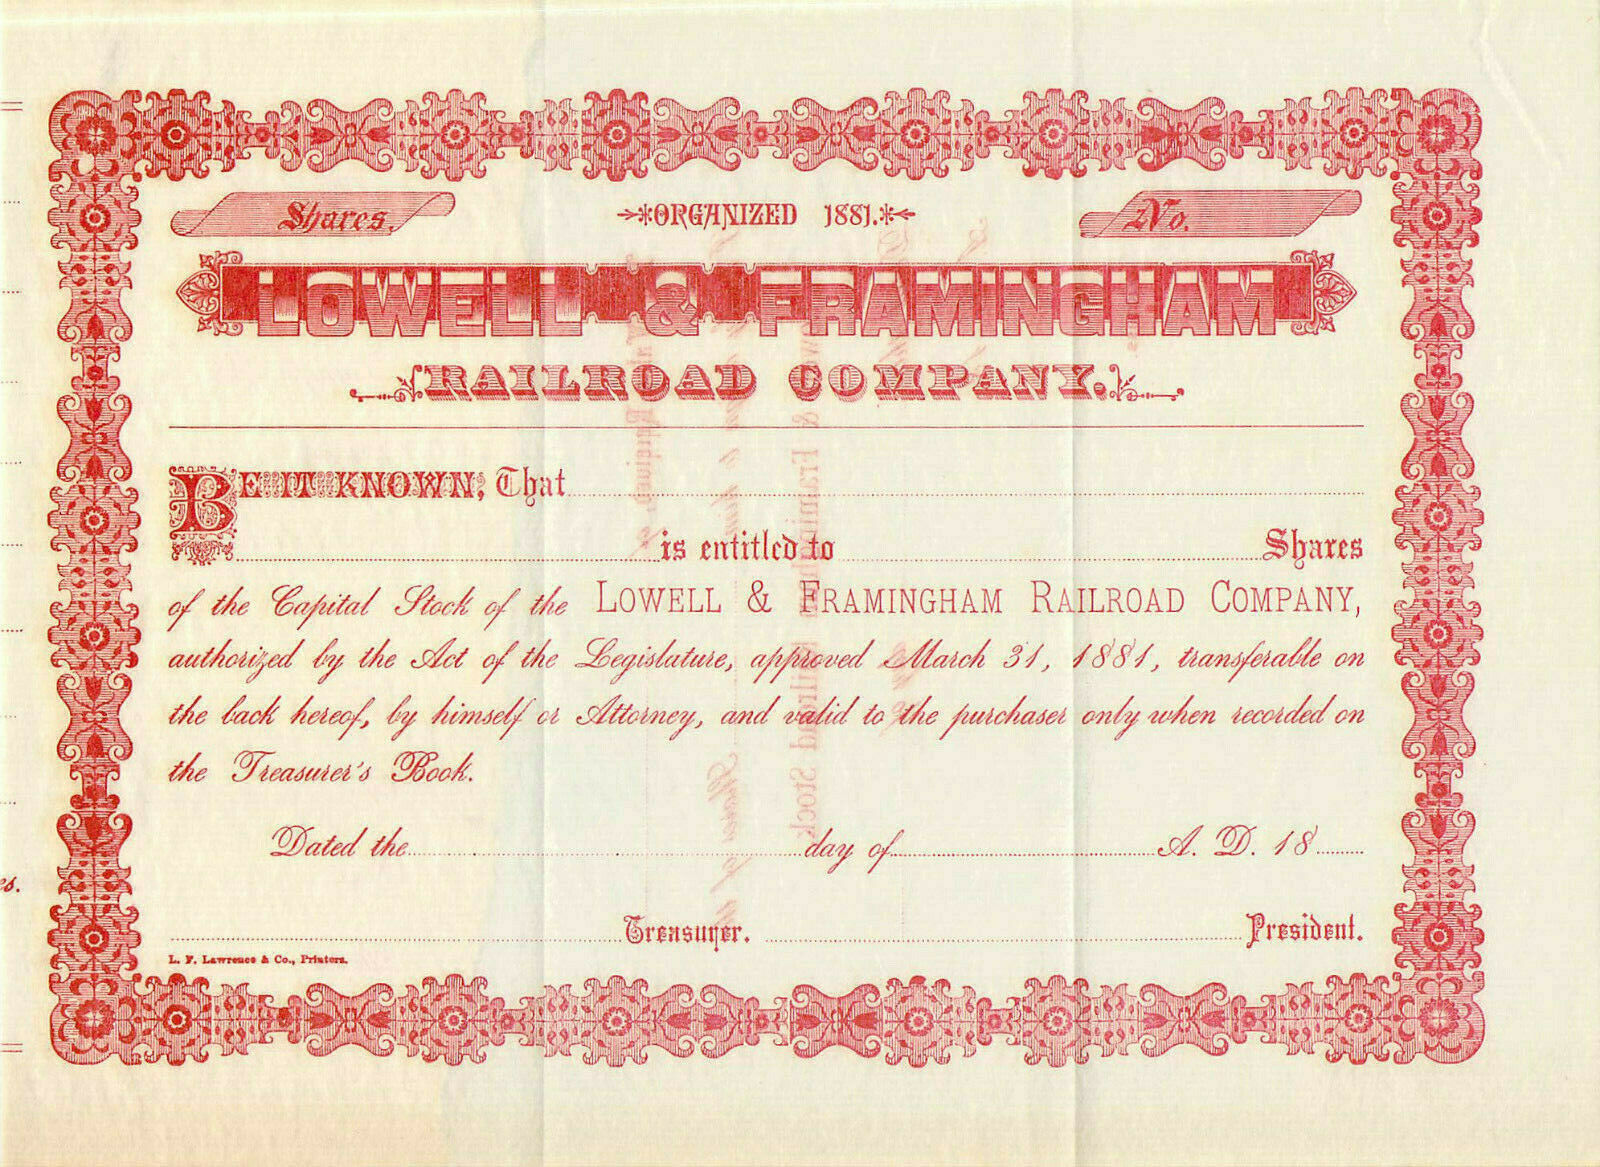 Shares. ORGANIZED 1881. No.
LOWELL & FRAMINGHAM
RAILROAD COMPANY.
BE IT KNOWN, That
is entitled to Shares
of the Capital Stock of the LOWELL & FRAMINGHAM RAILROAD COMPANY,
authorized by the Act of the Legislature, approved March 31, 1881, transferable on
the back hereof, by himself or Attorney, and valid to the purchaser only when recorded on
the Treasurer's Book.
Dated the day of A. D. 18
Treasurer. President.
L. F. Lawrence & Co., Printers.